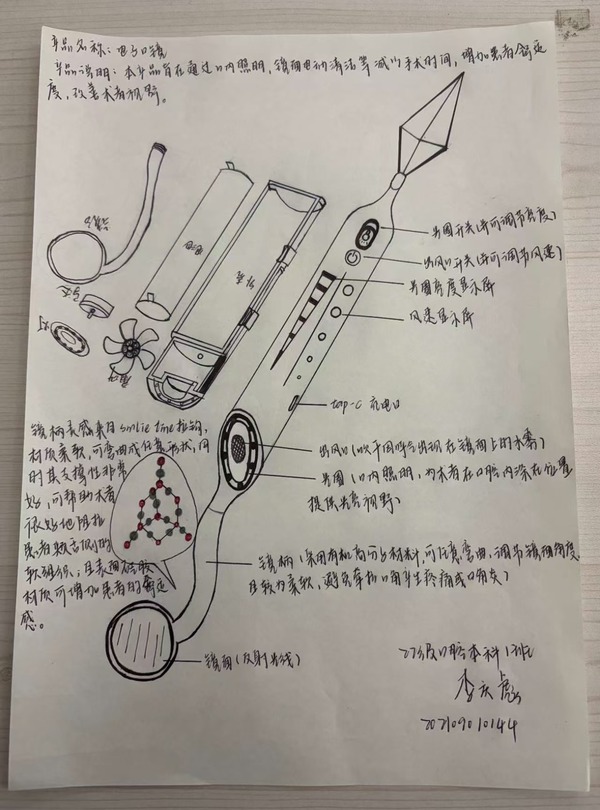 产品名称：电动口镜
产品说明：本产品旨在通过口内照明，镜面电动清洁等减少手术时间，增加患者舒适
度，改善术者视野。
口镜
电池
外壳
马达
灯
扇
光圈开关(并可调节亮度)
出风口开关(并可调节风速)
光圈亮度显示屏
风速显示屏
tap-c 充电口
出风口(吹干因呼气出现在镜面上的水雾)
光圈(口内照明，为术者在口腔内深在位置
提供光亮视野)
镜柄灵感来自 smlie time 拉钩，
材质柔软，可弯曲成任意形状，同
时其支撑性非常
好，可帮助术者
很好地阻拉
患者颊舌侧的
软组织；且表面硅胶
材质可增加患者的舒适
感。
镜柄(采用有机高分子材料，可任意弯曲，调节镜面角度
且较为柔软，避免牵拉口角产生疼痛或口角炎)
镜面(反射光线)
22级口腔本科1班
李庆
202109010144